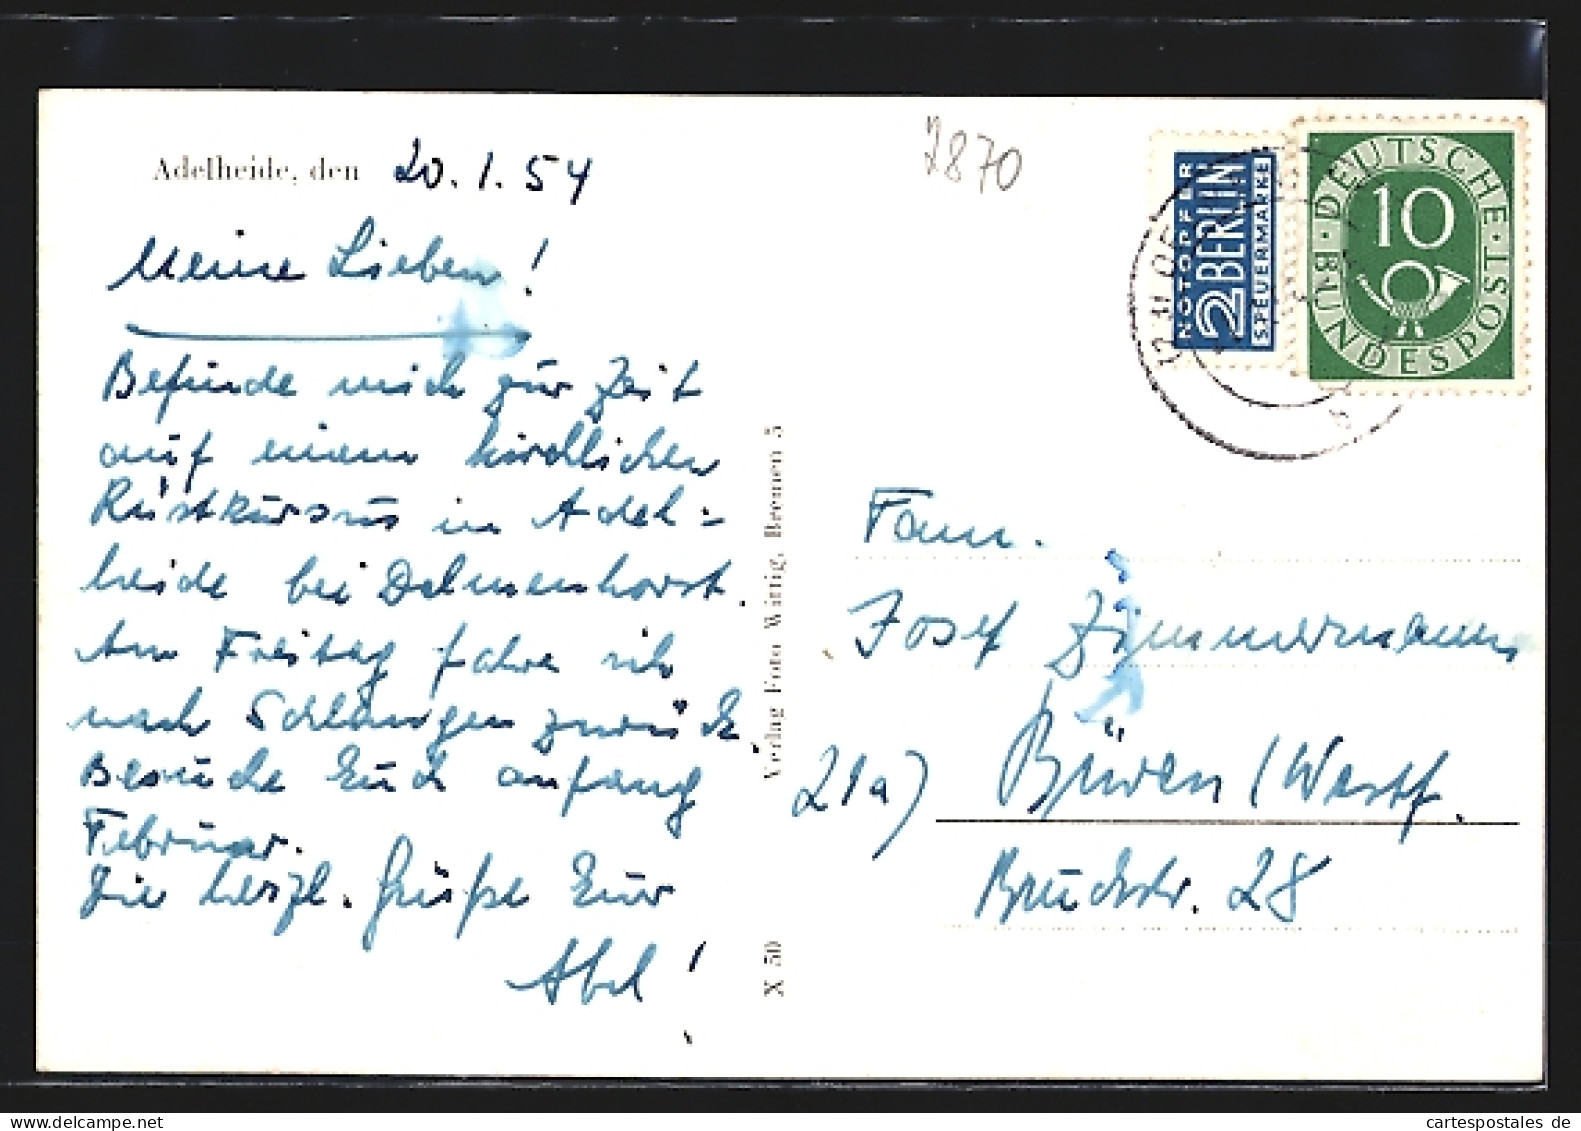 Adelheide, den 20.1.54
2870
Meine Lieben!
Befinde mich zur Zeit
auf einem kirchlichen
Rüstkursus in Adel-
heide bei Delmenhorst.
Am Freitag fahre ich
nach Schlangen zurück
Besuche Euch anfang
Februar.
Die herzl. Grüße Eur
Abel!
Verlag Foto Wirtig, Bremen 5
X 50
NOTOPFER
2 BERLIN
STEUERMARKE
DEUTSCHE
BUNDESPOST
10
Fam.
Josef Zimmermann
21a) Büren / Westf.
Bruchstr. 28
cartespostales de